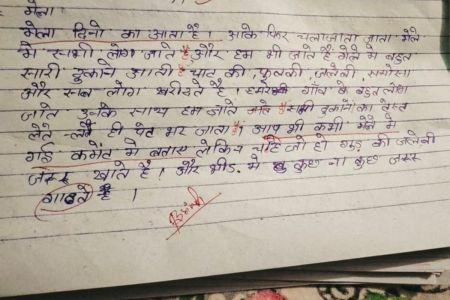 मेला
मेला दिनो का आता है। आके फिर चलाजाता जाता मेले
मे सभी लोग जाते है और हम भी जाते है मेले मे बहुत
सारी दुकाने आती है चाट की, फुलकी, जलेबी, समोसा
और सब लोग खरीदते है। हमारे गाँव के बहुत लोग
जाते उनके साथ हम जाते जाते है सभी दुकानो का टेस्ट
लेते-लेते ही पेट भर जाता है। आप भी कभी मेले मे
गई कमेंट मे बताए लेकिन चाहे जो हो गुड़ की जलेबी
जरूर खाते है। और भीड़ मे कुछ ना कुछ जरूर
है।